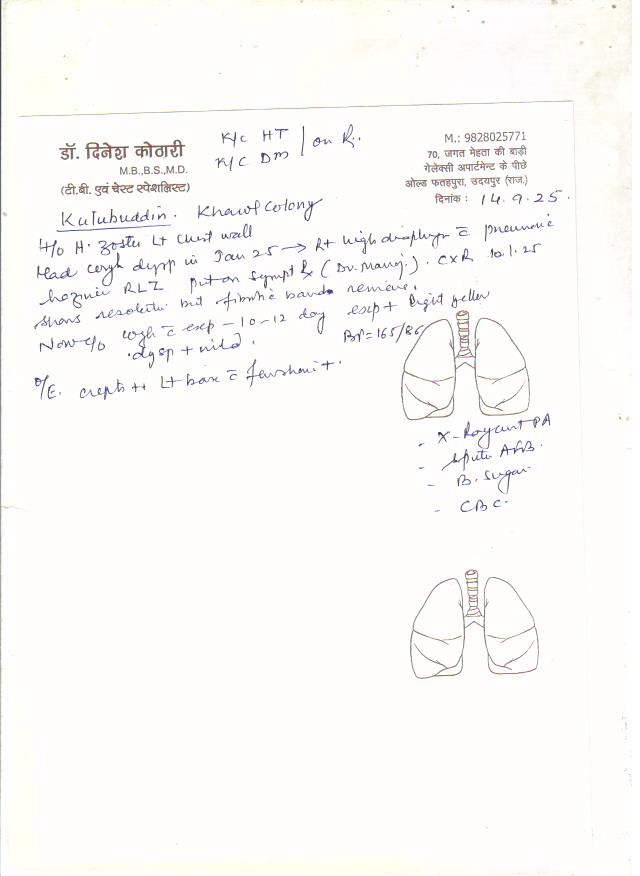 डॉ. दिनेश कोठारी
M.B.,B.S.,M.D.
(टी.बी. एवं चेस्ट स्पेशलिस्ट)
K/c HT / on Rx.
K/c DM
M.: 9828025771
70, जगत मेहता की बाड़ी
गेलेक्सी अपार्टमेन्ट के पीछे
ओल्ड फतहपुरा, उदयपुर (राज.)
दिनांक : 14.9.25.
Kutubuddin. Colony
H/o H. Zoster Lt Chest wall
Had cough in Jan 25 → Rt high c̄ pneumonic
RLZ put on sympt Rx (Dr. Manoj). CXR 10.1.25
shows but fibrotic bands
Now c/o cough c̄ exp - 10-12 day exp + light yellow
+ mild.
BP = 165/86
O/E. crepts ++ Lt base c̄ +.
- X-Ray PA
- AFB.
- B. Sugar
- CBC.